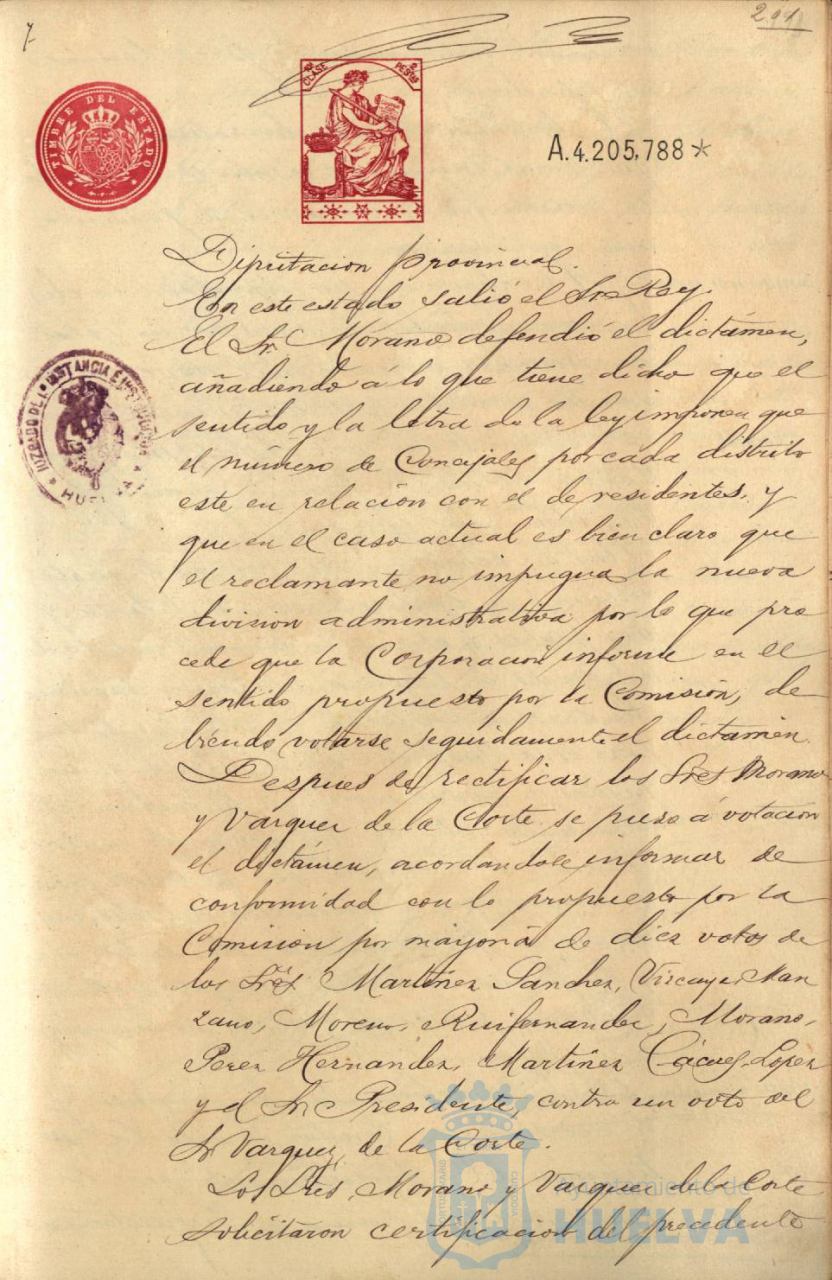 291
TIMBRE DEL ESTADO
CLASE
PESTAS
A.4.205,788*
JUZGADO DE 1ª INSTANCIA E INSTRUCCION
HUELVA
Diputacion provincial.
En este estado salió el Sr Rey.
El Sr. Morano defendió el dictámen,
añadiendo á lo que tiene dicho que el
sentido y la letra de la ley imponen que
el número de Concejales por cada distrito
este en relacion con el de residentes, y
que en el caso actual es bien claro que
el reclamante no impugna la nueva
division administrativa por lo que pro
cede que la Corporacion informe en el
sentido propuesto por la Comisión, de
biendo votarse seguidamente el dictamen.
Despues de rectificar los Sres Morano
y Vazquez de la Corte se puso á votacion
el dictámen, acordandose informar de
conformidad con lo propuesto por la
Comision por mayoria de diez votos de
los Sres Martinez Sanchez, Vizcaya, Man
zano, Moreno, Ruifernandez, Morano,
Perez Hernandez, Martinez Cáceres, Lopez
y el Sr Presidente, contra un voto del
Sr Vazquez de la Corte.
Los Sres. Morano y Vazquez de la Corte
solicitaron certificacion del precedente
Ayuntamiento de
HUELVA